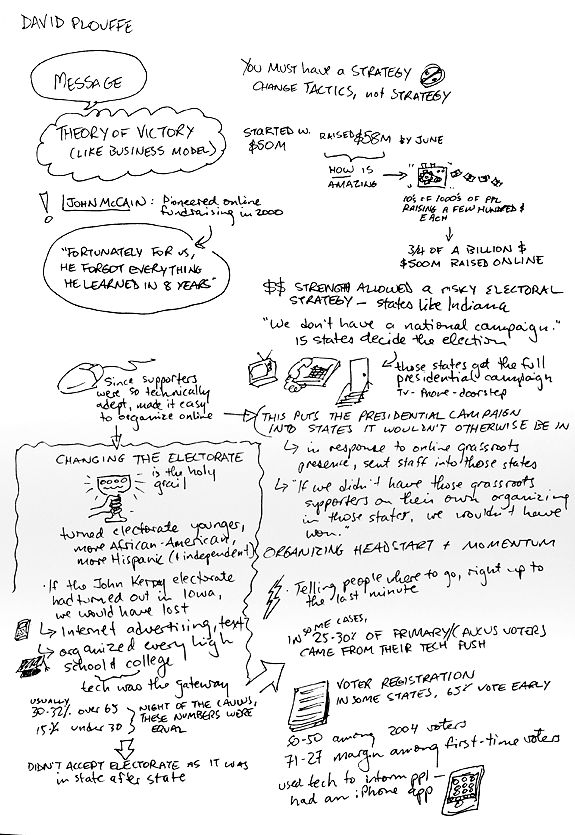 DAVID PLOUFFE
MESSAGE
THEORY OF VICTORY
(LIKE BUSINESS MODEL)
YOU MUST HAVE A STRATEGY
CHANGE TACTICS, NOT STRATEGY
STARTED W.
$50M
RAISED $58M BY JUNE
HOW IS
AMAZING
10'S OF 1000'S OF PPL
RAISING A FEW HUNDRED $
EACH
3/4 OF A BILLION $
$500M RAISED ONLINE
! JOHN MCCAIN: Pioneered online
fundraising in 2000
"FORTUNATELY FOR US,
HE FORGOT EVERYTHING
HE LEARNED IN 8 YEARS"
$$ STRENGTH ALLOWED A RISKY ELECTORAL
STRATEGY - states like Indiana
"We don't have a national campaign."
15 states decide the election
those states got the full
presidential campaign
TV - Phone - doorstep
Since supporters
were so technically
adept, made it easy
to organize online
THIS PUTS THE PRESIDENTIAL CAMPAIGN
INTO STATES IT WOULDN'T OTHERWISE BE IN
in response to online grassroots
presence, sent staff into those states
"If we didn't have those grassroots
supporters on their own organizing
in those states, we wouldn't have
won."
CHANGING THE ELECTORATE
is the holy
grail
turned electorate younger,
more African-American,
more Hispanic (+ independent)
· If the John Kerry electorate
had turned out in Iowa,
we would have lost
Internet advertising, text
organized every high
school & college
tech was the gateway
USUALLY
30-32% over 65
15% under 30
NIGHT OF THE CAUCUS,
THESE NUMBERS WERE
EQUAL
DIDN'T ACCEPT ELECTORATE AS IT WAS
in state after state
ORGANIZING HEADSTART + MOMENTUM
Telling people where to go, right up to
the last minute
IN SOME CASES,
25-30% OF PRIMARY/CAUCUS VOTERS
CAME FROM THEIR TECH PUSH
VOTER REGISTRATION
IN SOME STATES, 65% VOTE EARLY
50-50 among 2004 voters
71-27 margin among first-time voters
used tech to inform ppl
had an iPhone app